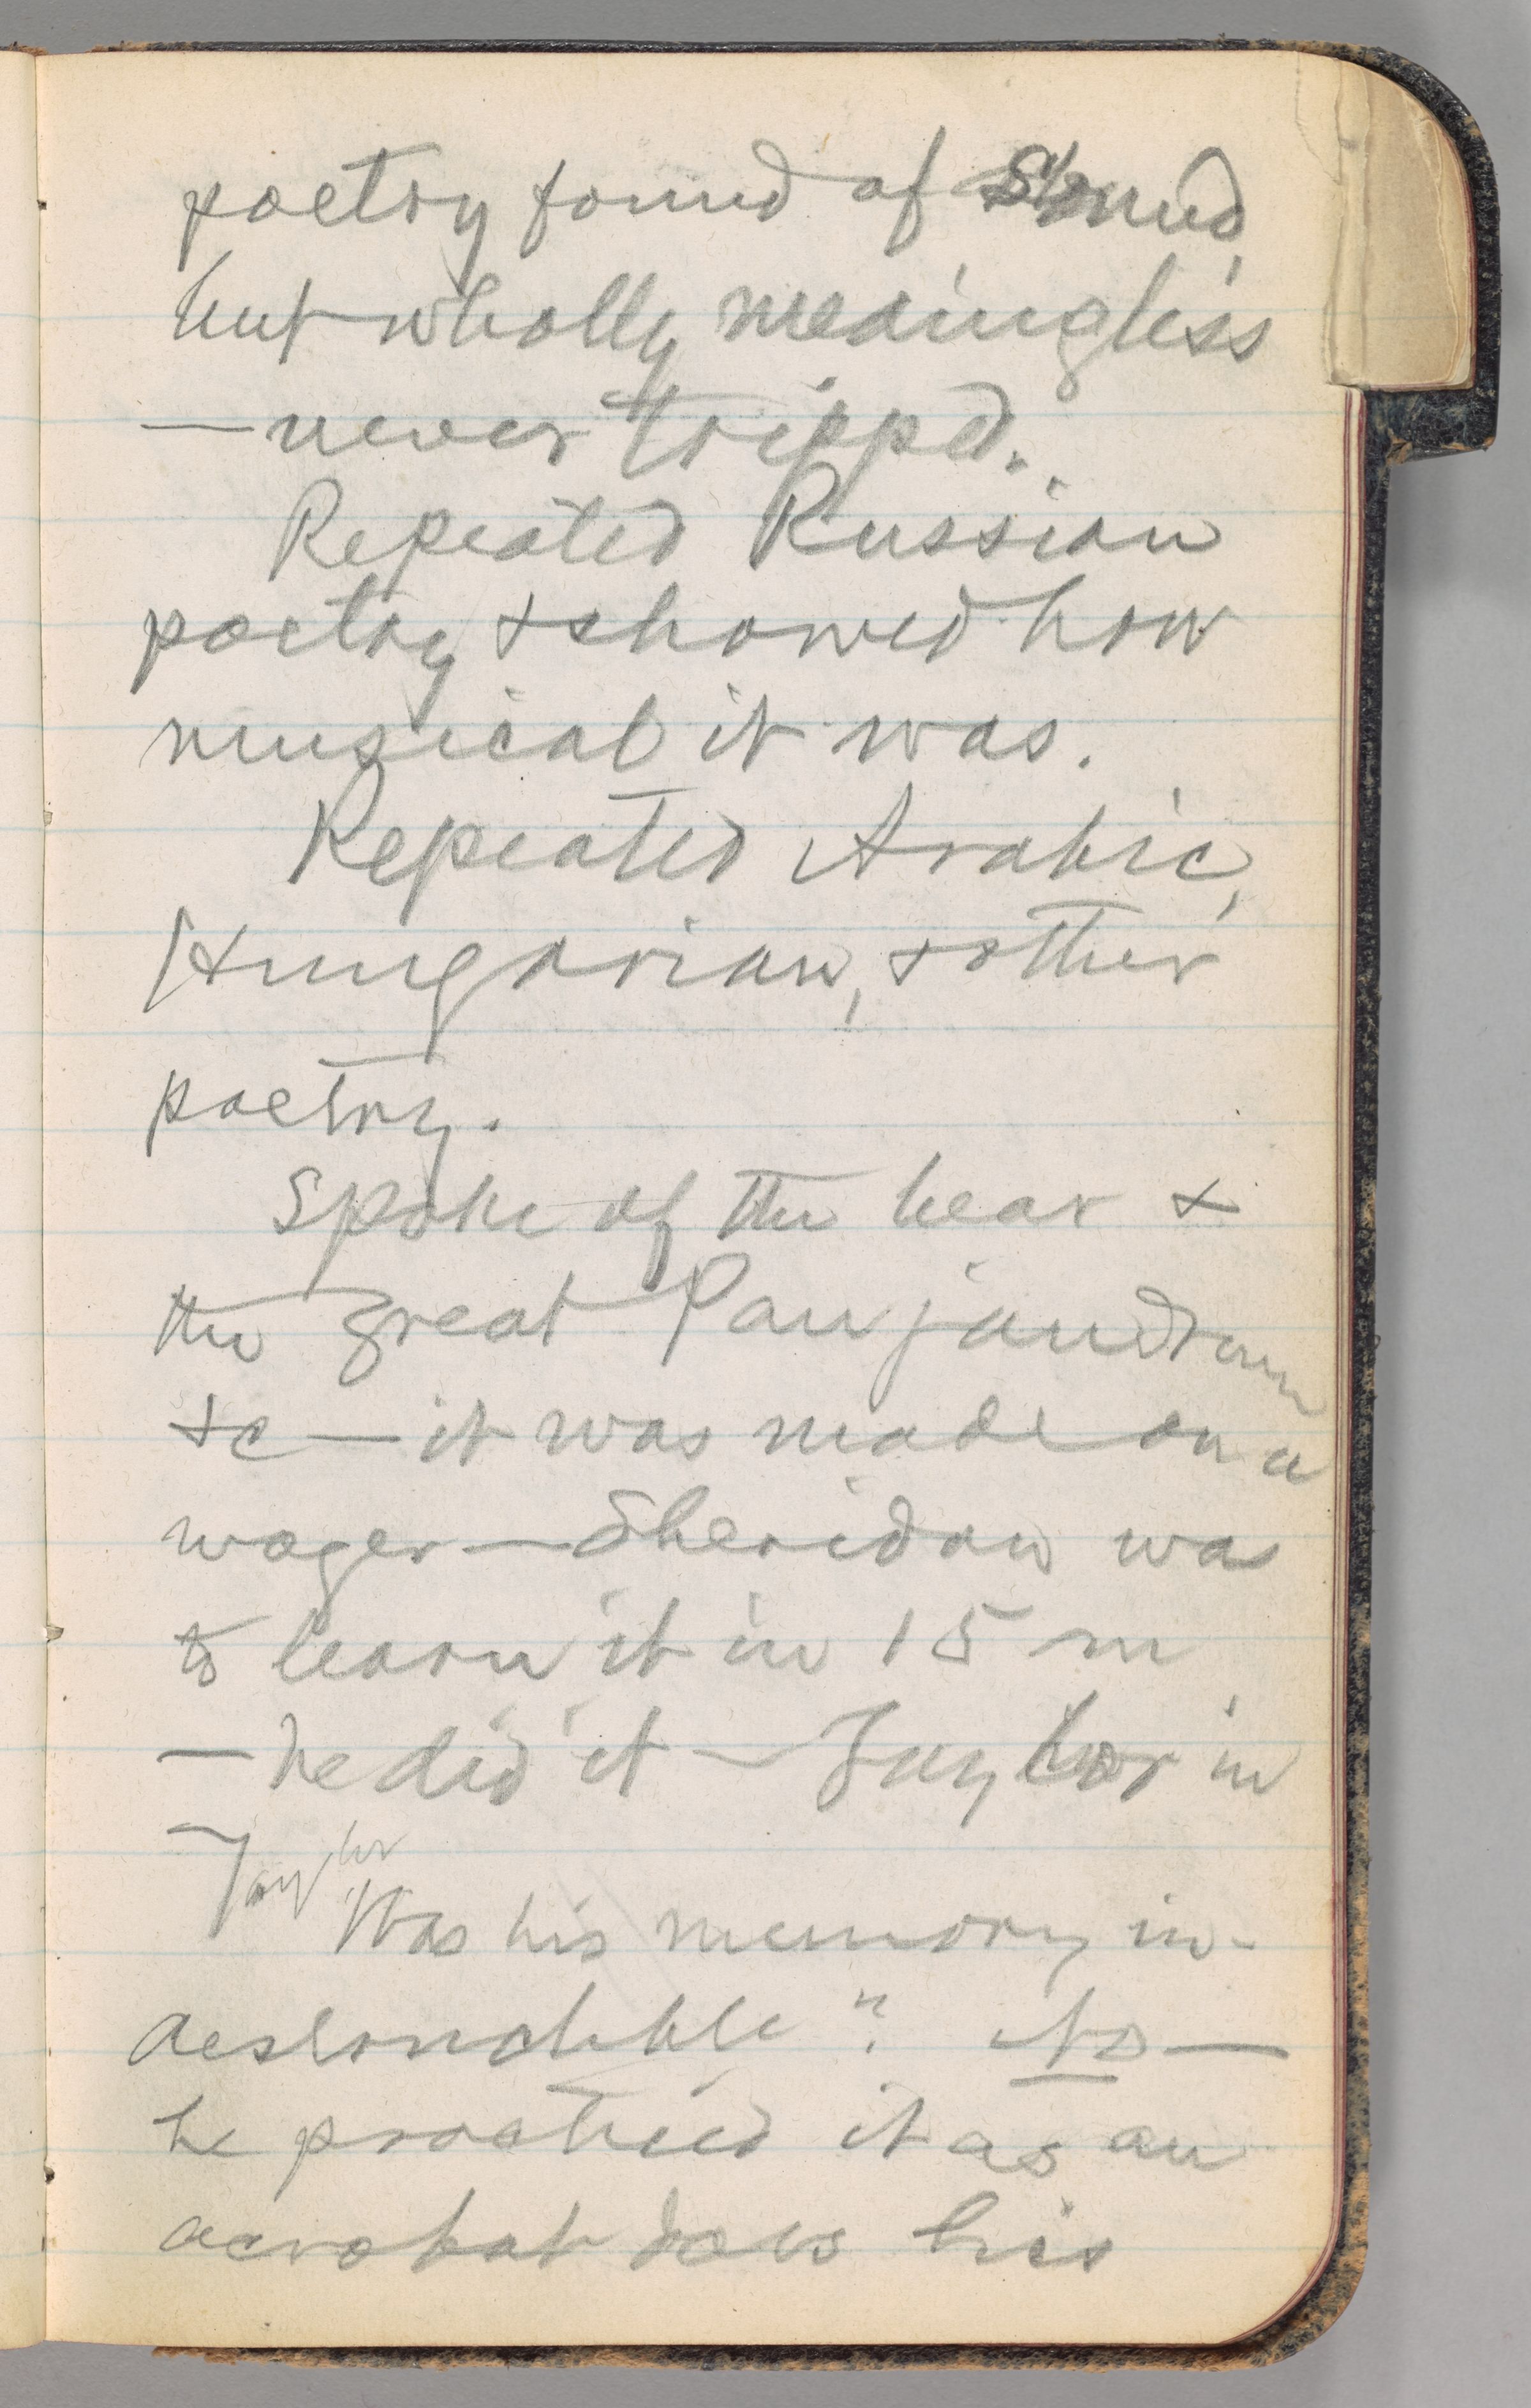 poetry found of sound,
but wholly meaingless
— never tripped.
Repeated Russian
poetry & showed how
musical it was.
Repeated Arabic,
Hungarian, & other
poetry.
Spoke of the bear &
the great Panjandrum
&c — it was made on a
wager — Sheridan was
to learn it in 15 m
— he did it — Taylor in
Taylor
Was his memory in-
aeslonahble? No —
he practiced it as an
acrobat does his